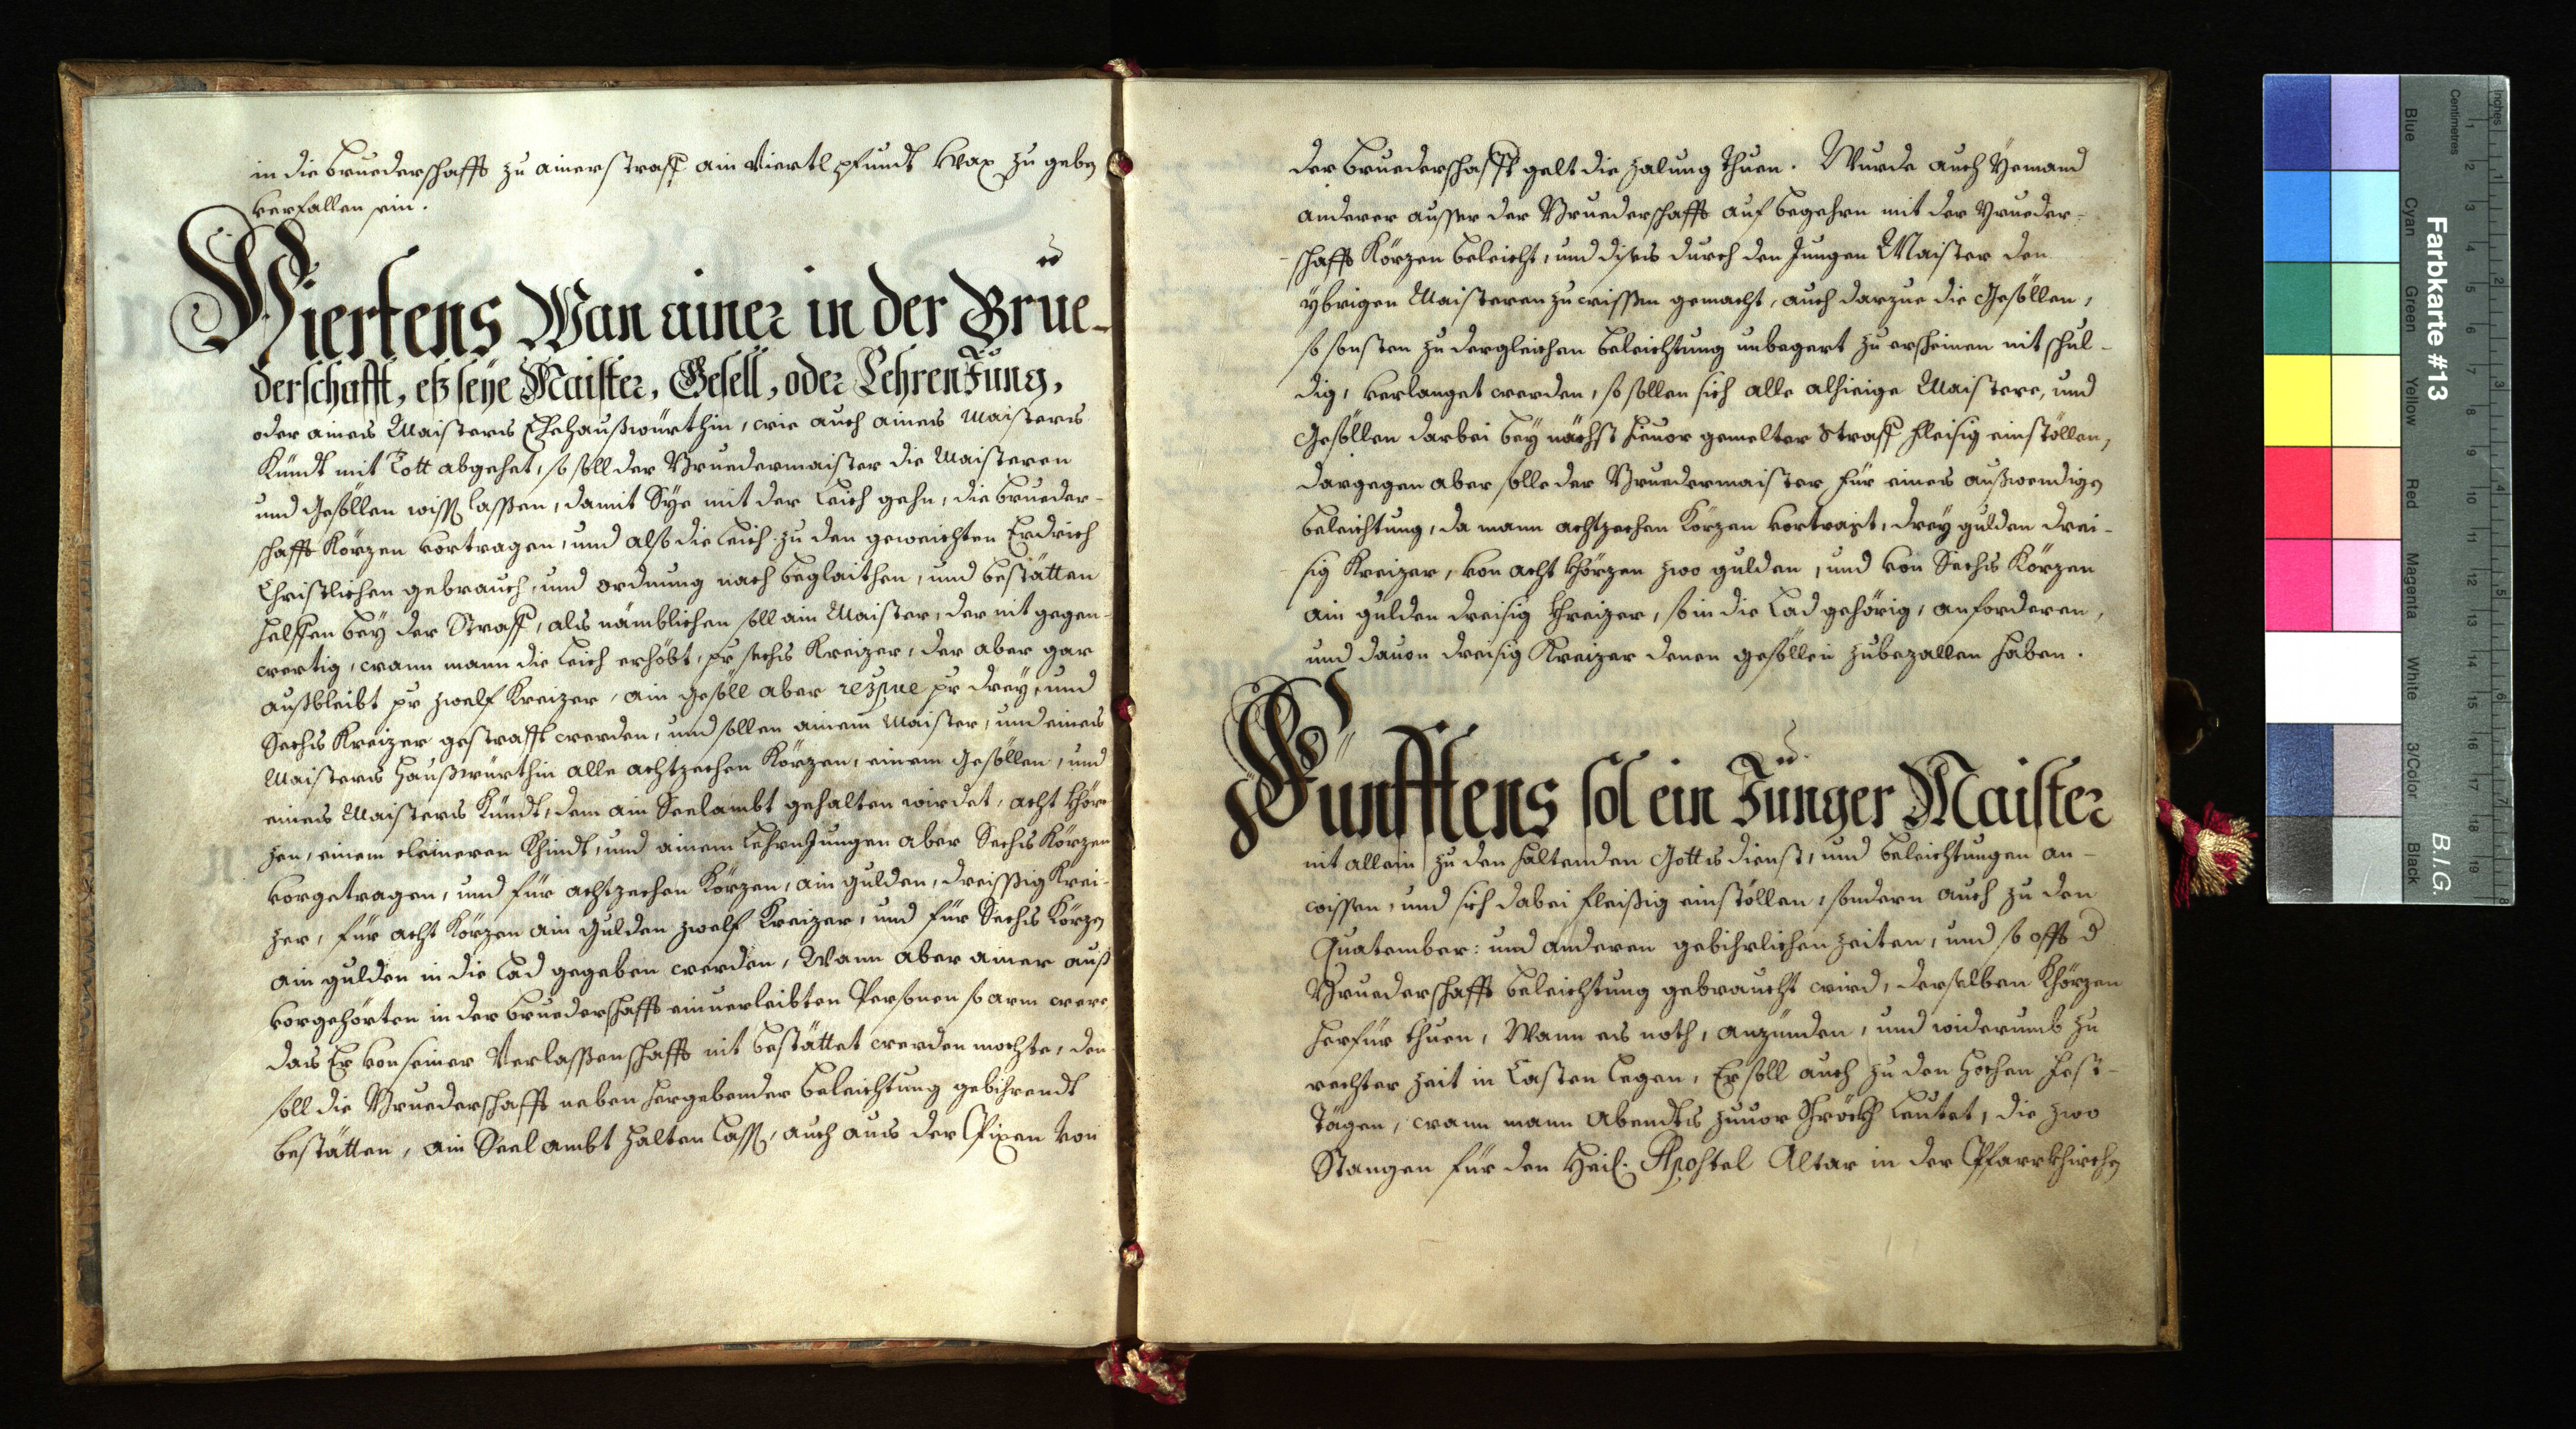 in die Bruederschafft zu ainer straff ain Viertl pfundt Wax zu geben
verfallen sein.
Viertens Wan ainer in der Brue-
derschafft, eß seye Maister, Gesell, oder LehrenJung,
oder aines Maisters Ehehaußwürthin, wie auch aines Maisters
Kündt mit Tott abgehet, so soll der Bruedermaister die Maisteren
und Gesöllen wissen lassen, damit Sye mit der Leich gehn, die Brueder-
schafft Körzen vortragen, und also die Leich zu den geweichten Erdrich
Christlichen gebrauch, und ordnung nach beglaithen, und bestätten
helffen bey der Straff, als nämblichen soll ain Maister, der nit gegen-
wertig, wann mann die Leich erhöbt, pr sechs Kreizer, der aber gar
außbleibt pr zwelf Kreizer, ain gesöll aber respue pr drey, und
Sechs Kreizer gestrafft werden, und sollen ainem Maister, und eines
Maisters Haußwürthin alle achtzechen Körzen, einem Gesöllen, und
eines Maisters Kündt, dem ain Seelambt gehalten wirdet, acht Khör-
zen, einem cleineren Khindt, und ainem LehrnJungen aber Sechs Körzen
vorgetragen, und für achtzechen Körzen, ain gulden, dreissig Krei-
zer, für acht Körzen ain Gulden zwelf Kreizer, und für Sechs Körzen
ain gulden in die Lad gegeben werden, Wann aber ainer auß
vorgehörten in der Bruederschafft einverleibten Persohnen so arm were,
das Er von seiner Verlassenschafft nit bestättet werden mochte, den
soll die Bruederschafft neben hergebender beleichtung gebihrendt
bestätten, ain Seelambt halten lassen, auch aus der Pixen von
der Bruederschafft gelt die zalung thuen. Wurde auch Yemand
anderer ausser der Bruederschafft auf begehrn mit der Brueder-
schafft Körzen beleicht, und dises durch den Jungen Maister den
ybrigen Maisteren zu wissen gemacht, auch darzue die Gesöllen,
so sonsten zu dergleichen beleichtung unbegert zu erscheinen nit schul-
dig, verlanget werden, so sollen sich alle alhieige Maistere, und
Gesöllen darbei bey nächst hievor gemelter Straff fleisig einstöllen,
dargegen aber solle der Bruedermaister für eines außwendigen
beleichtung, da mann achtzechen Körzen vortragt, drey gulden drei-
sig Kreizer, von acht Khörzen zwo gulden, und von Sechs Körzen
ain gulden dreisig Khreizer, so in die Lad gehörig, anforderen,
und davon dreisig Kreizer denen gesöllen zubezallen haben.
Fünfftens sol ein Junger Maister
nit allein zu den haltenden Gottsdienst, und beleichtungen an-
wissen, und sich dabei fleißig einstöllen, sondern auch zu den
Quatember: und anderen gebihrlichen zeiten, und so offt d
Bruederschafft beleichtung gebraucht wird, derselben Khörzen
herfür thuen, Wann es noth, anzünden, und widerumb zu
rechter Zeit in Casten legen, Er soll auch zu den hochen Fest-
Tägen, wann mann Abendts zuvor Schröckh leutet, die zwo
Stangen für den Heil. Apostel Altar in der Pfarrkhirchen
Farbkarte #13
B.I.G.
Blue
Cyan
Green
Yellow
Red
Magenta
White
3/Color
Black
Centimetres
Inches